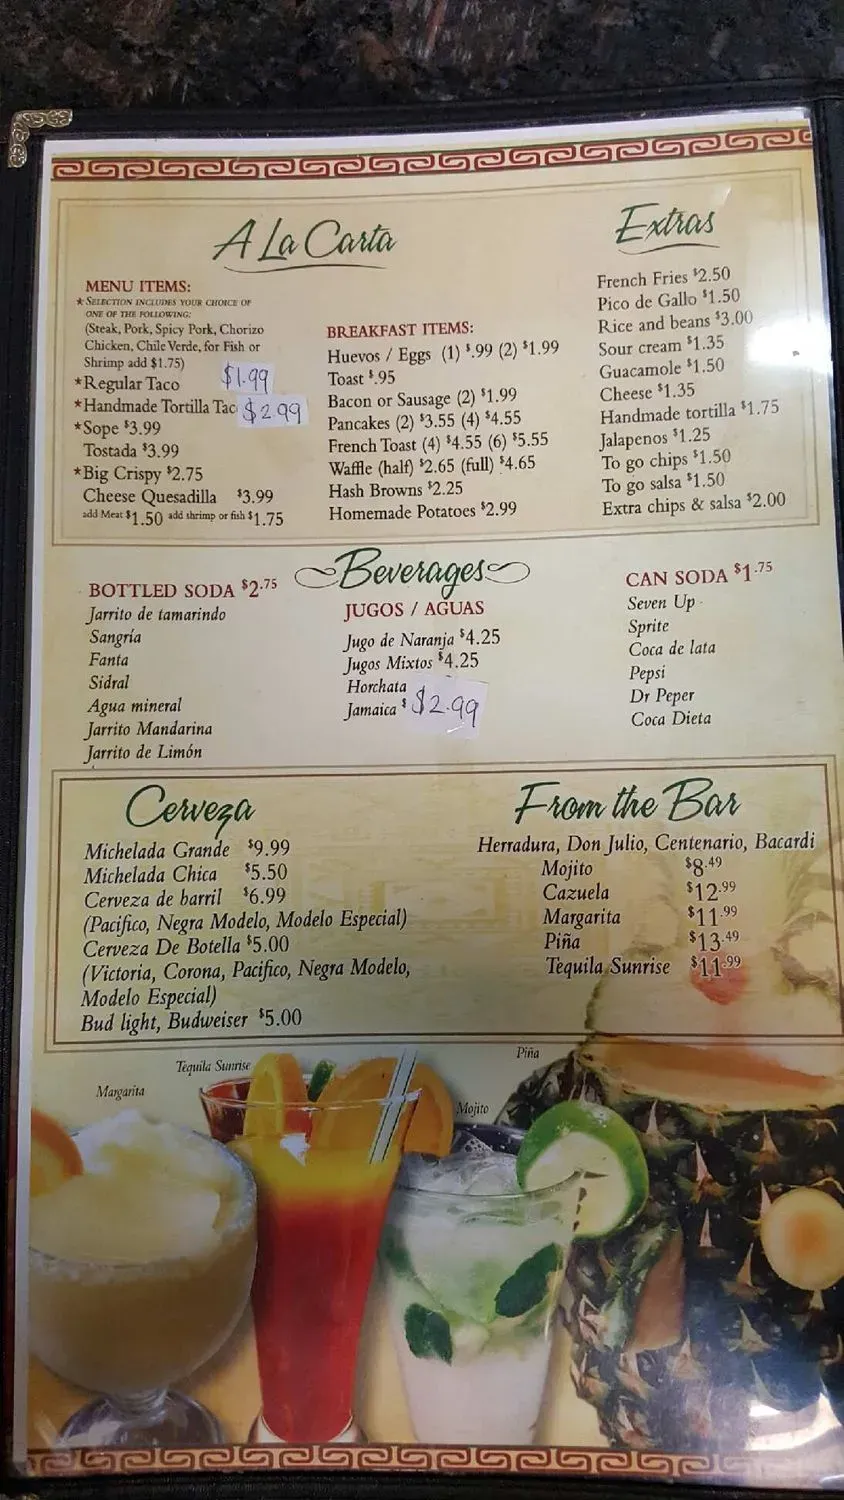 A La Carta
MENU ITEMS:
* SELECTION INCLUDES YOUR CHOICE OF
ONE OF THE FOLLOWING:
(Steak, Pork, Spicy Pork, Chorizo
Chicken, Chile Verde, for Fish or
Shrimp add $1.75)
*Regular Taco $1.99
*Handmade Tortilla Tac $2.99
*Sope $3.99
Tostada $3.99
*Big Crispy $2.75
Cheese Quesadilla $3.99
add Meat $1.50 add shrimp or fish $1.75
BREAKFAST ITEMS:
Huevos / Eggs (1) $.99 (2) $1.99
Toast $.95
Bacon or Sausage (2) $1.99
Pancakes (2) $3.55 (4) $4.55
French Toast (4) $4.55 (6) $5.55
Waffle (half) $2.65 (full) $4.65
Hash Browns $2.25
Homemade Potatoes $2.99
Extras
French Fries $2.50
Pico de Gallo $1.50
Rice and beans $3.00
Sour cream $1.35
Guacamole $1.50
Cheese $1.35
Handmade tortilla $1.75
Jalapenos $1.25
To go chips $1.50
To go salsa $1.50
Extra chips & salsa $2.00
Beverages
BOTTLED SODA $2.75
Jarrito de tamarindo
Sangría
Fanta
Sidral
Agua mineral
Jarrito Mandarina
Jarrito de Limón
JUGOS / AGUAS
Jugo de Naranja $4.25
Jugos Mixtos $4.25
Horchata
Jamaica $ $2.99
CAN SODA $1.75
Seven Up
Sprite
Coca de lata
Pepsi
Dr Peper
Coca Dieta
Cerveza
Michelada Grande $9.99
Michelada Chica $5.50
Cerveza de barril $6.99
(Pacifico, Negra Modelo, Modelo Especial)
Cerveza De Botella $5.00
(Victoria, Corona, Pacifico, Negra Modelo,
Modelo Especial)
Bud light, Budweiser $5.00
From the Bar
Herradura, Don Julio, Centenario, Bacardi
Mojito $8.49
Cazuela $12.99
Margarita $11.99
Piña $13.49
Tequila Sunrise $11.99
Margarita
Tequila Sunrise
Mojito
Piña